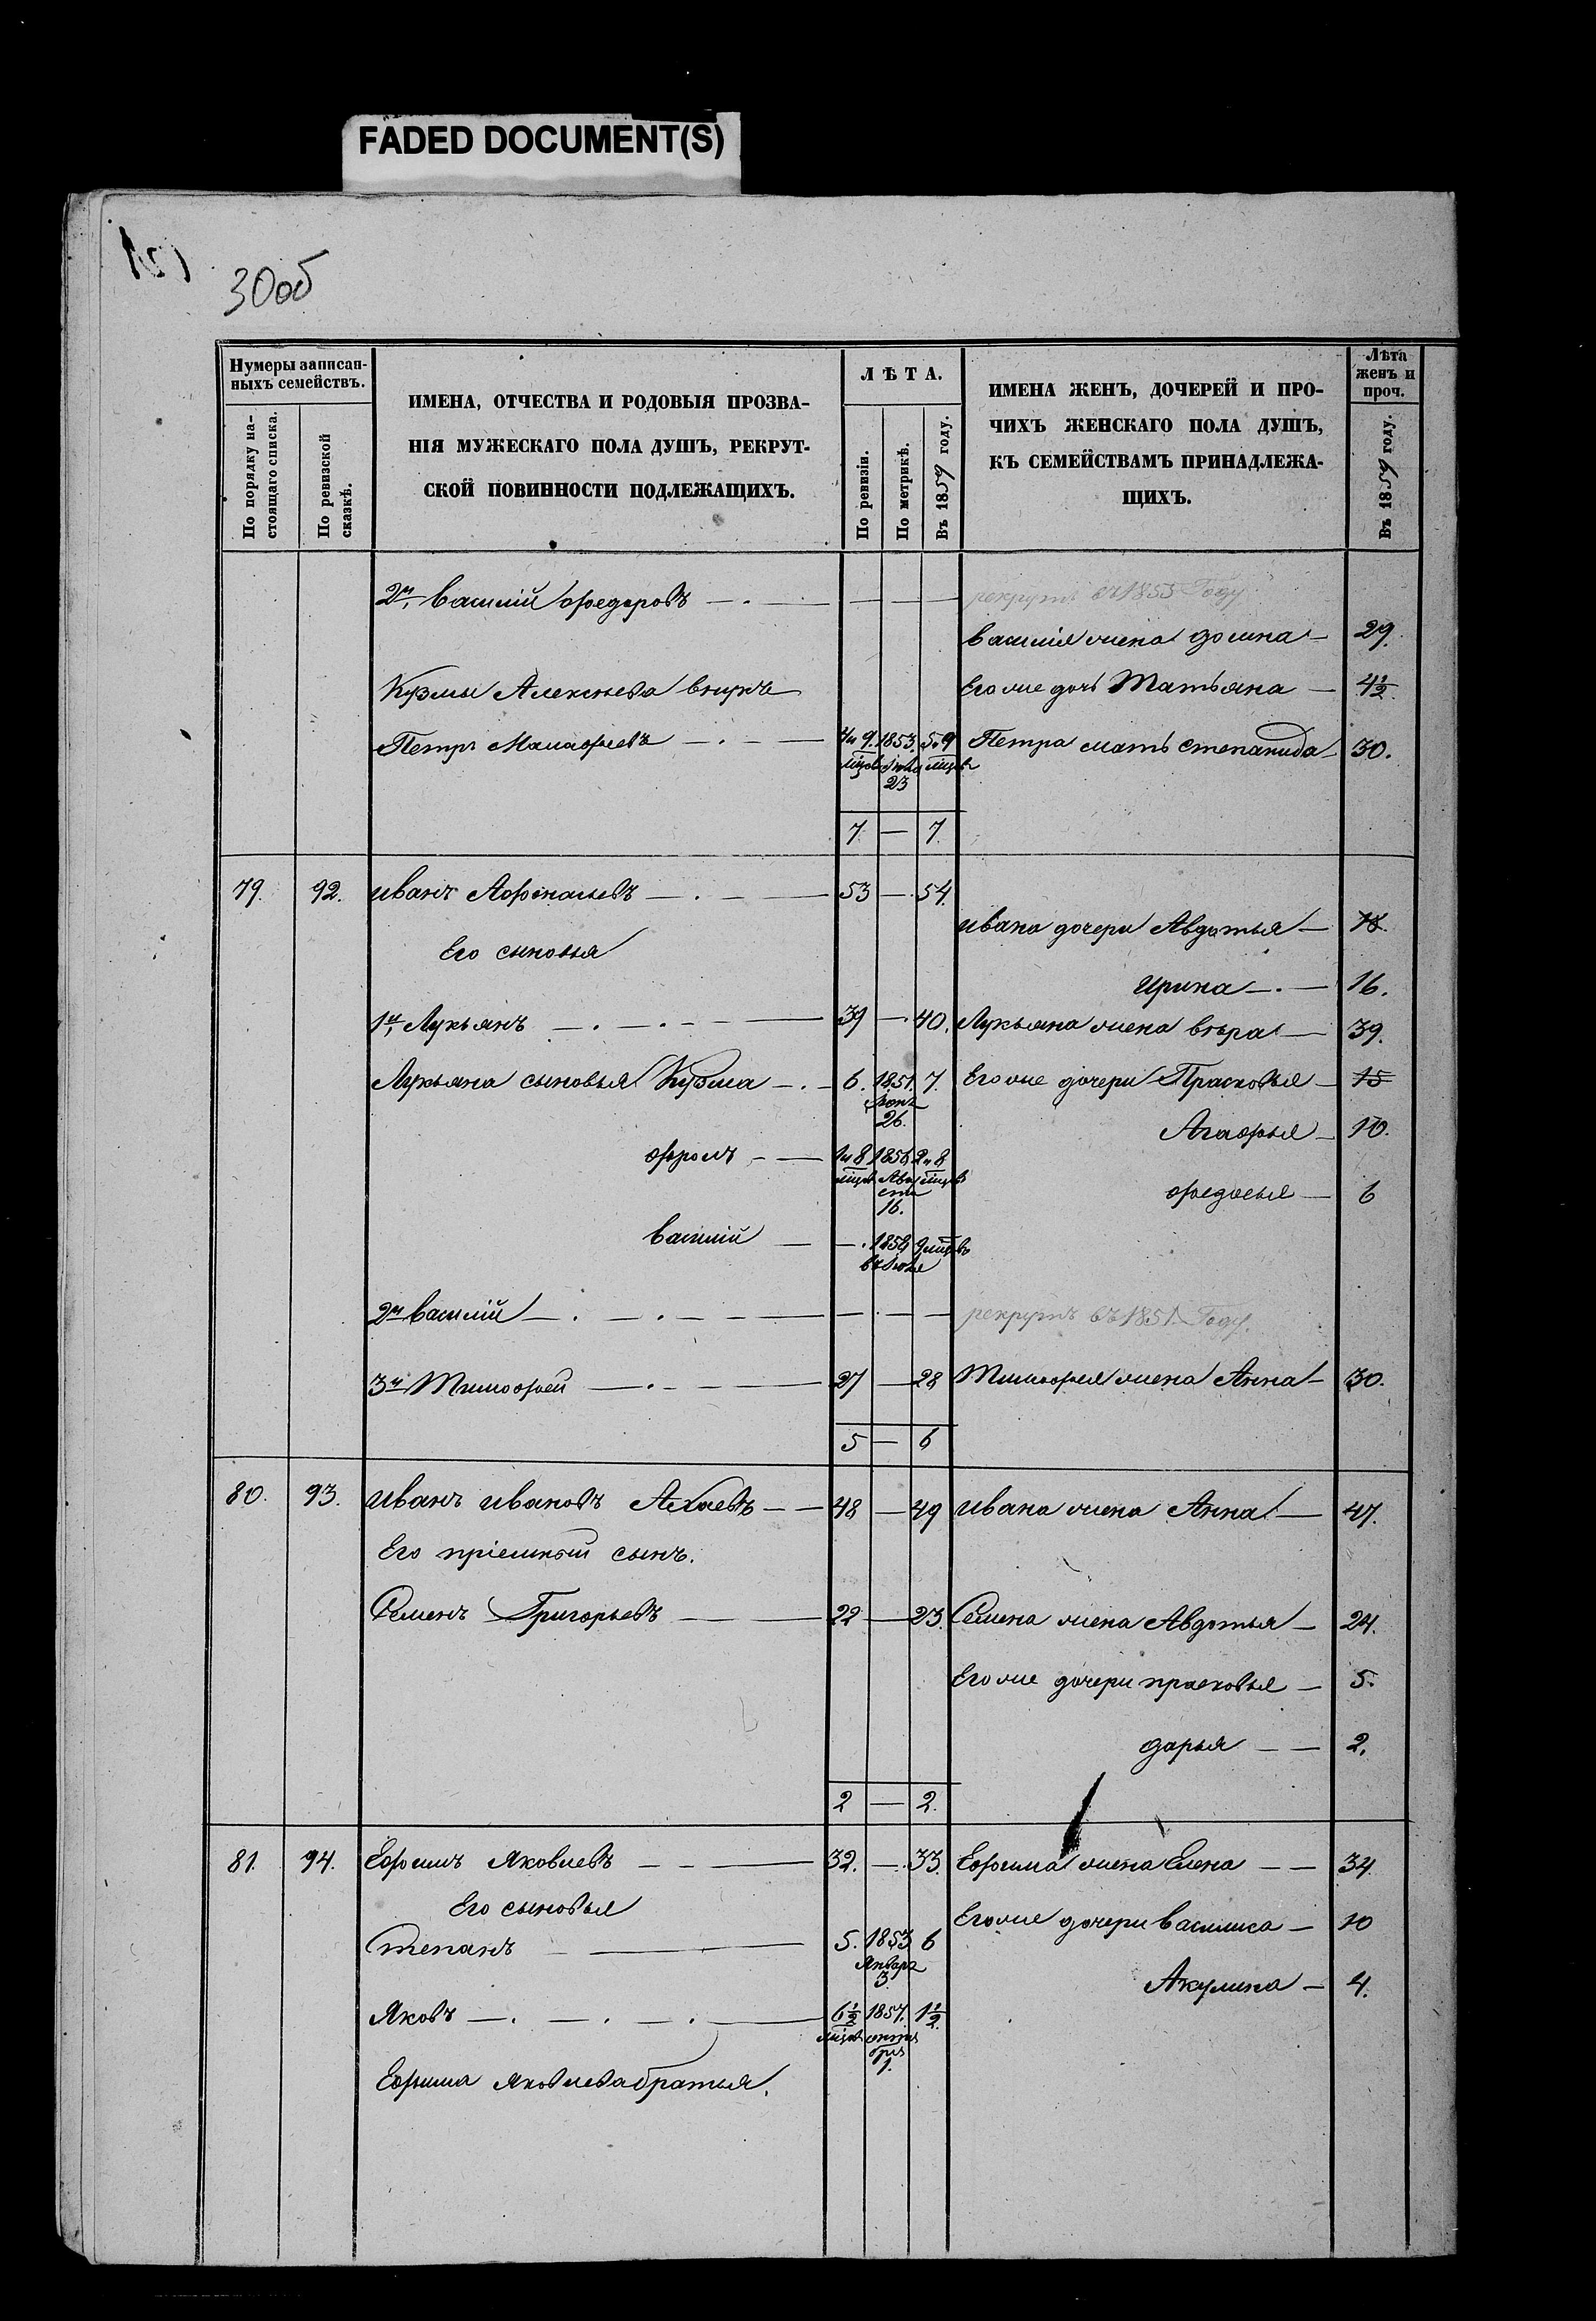 FADED DOCUMENT(S)
30об
Нумеры записан-
ныхъ семействъ.
По порядку на-
стоящаго списка.
По ревизской
сказкѣ.
ИМЕНА, ОТЧЕСТВА И РОДОВЫЯ ПРОЗВА-
НІЯ МУЖЕСКАГО ПОЛА ДУШЪ, РЕКРУТ-
СКОЙ ПОВИННОСТИ ПОДЛЕЖАЩИХЪ.
ЛѢТА.
По ревизіи.
По метрикѣ.
Въ 1859 году.
ИМЕНА ЖЕНЪ, ДОЧЕРЕЙ И ПРО-
ЧИХЪ ЖЕНСКАГО ПОЛА ДУШЪ,
КЪ СЕМЕЙСТВАМЪ ПРИНАДЛЕЖА-
ЩИХЪ.
Лѣта
женъ и
проч.
Въ 1859 году.
2й, Василій Федоровъ — рекрутъ въ 1855 Году
Василія жена Домна — 29.
Кузмы Алексѣева внукъ Его же дочь Татьяна — 4½
Петръ Малафеевъ — 4 и 9 мцовъ 1853. 23 5 и 9 мцовъ Петра мать Степанида 30.
7 — 7.
79. 92. Иванъ Афонасьевъ — 53 — 54.
Ивана дочери Авдотья — 18.
Его сыновья
Ирина — 16.
1й, Лукьянъ — 39 — 40. Лукьяна жена Вѣра — 39.
Лукьяна сыновья Кузма — 6. 1851. 26. 7. Его же дочери Прасковья — 15
Агафья — 10.
Фролъ — 1 и 8 мцовъ 1856 Августа 16. 2 и 8 мцовъ
Федосья — 6
Василій — 1858 въ Июле 9 мцовъ
2й Василій — рекрутъ въ 1851 Году.
3й Тимофей — 27 — 28 Тимофея жена Анна — 30.
5 — 6
80. 93. Иванъ Ивановъ — 48 — 49 Ивана жена Анна — 47.
Его пріемный сынъ.
Семенъ Григорьевъ — 22 — 23. Семена жена Авдотья — 24.
Его же дочери Прасковья — 5.
Дарья — 2.
2 — 2.
81. 94. Ефимъ Яковлевъ — 32. — 33. Ефима жена Елена — 34
Его сыновья
Его же дочери Василиса — 10
Степанъ — 5. 1853 Январь 3. 6
Акулина — 4.
Яковъ — 6½ мцовъ 1857. 1. 1½
Ефима Яковлева братья.